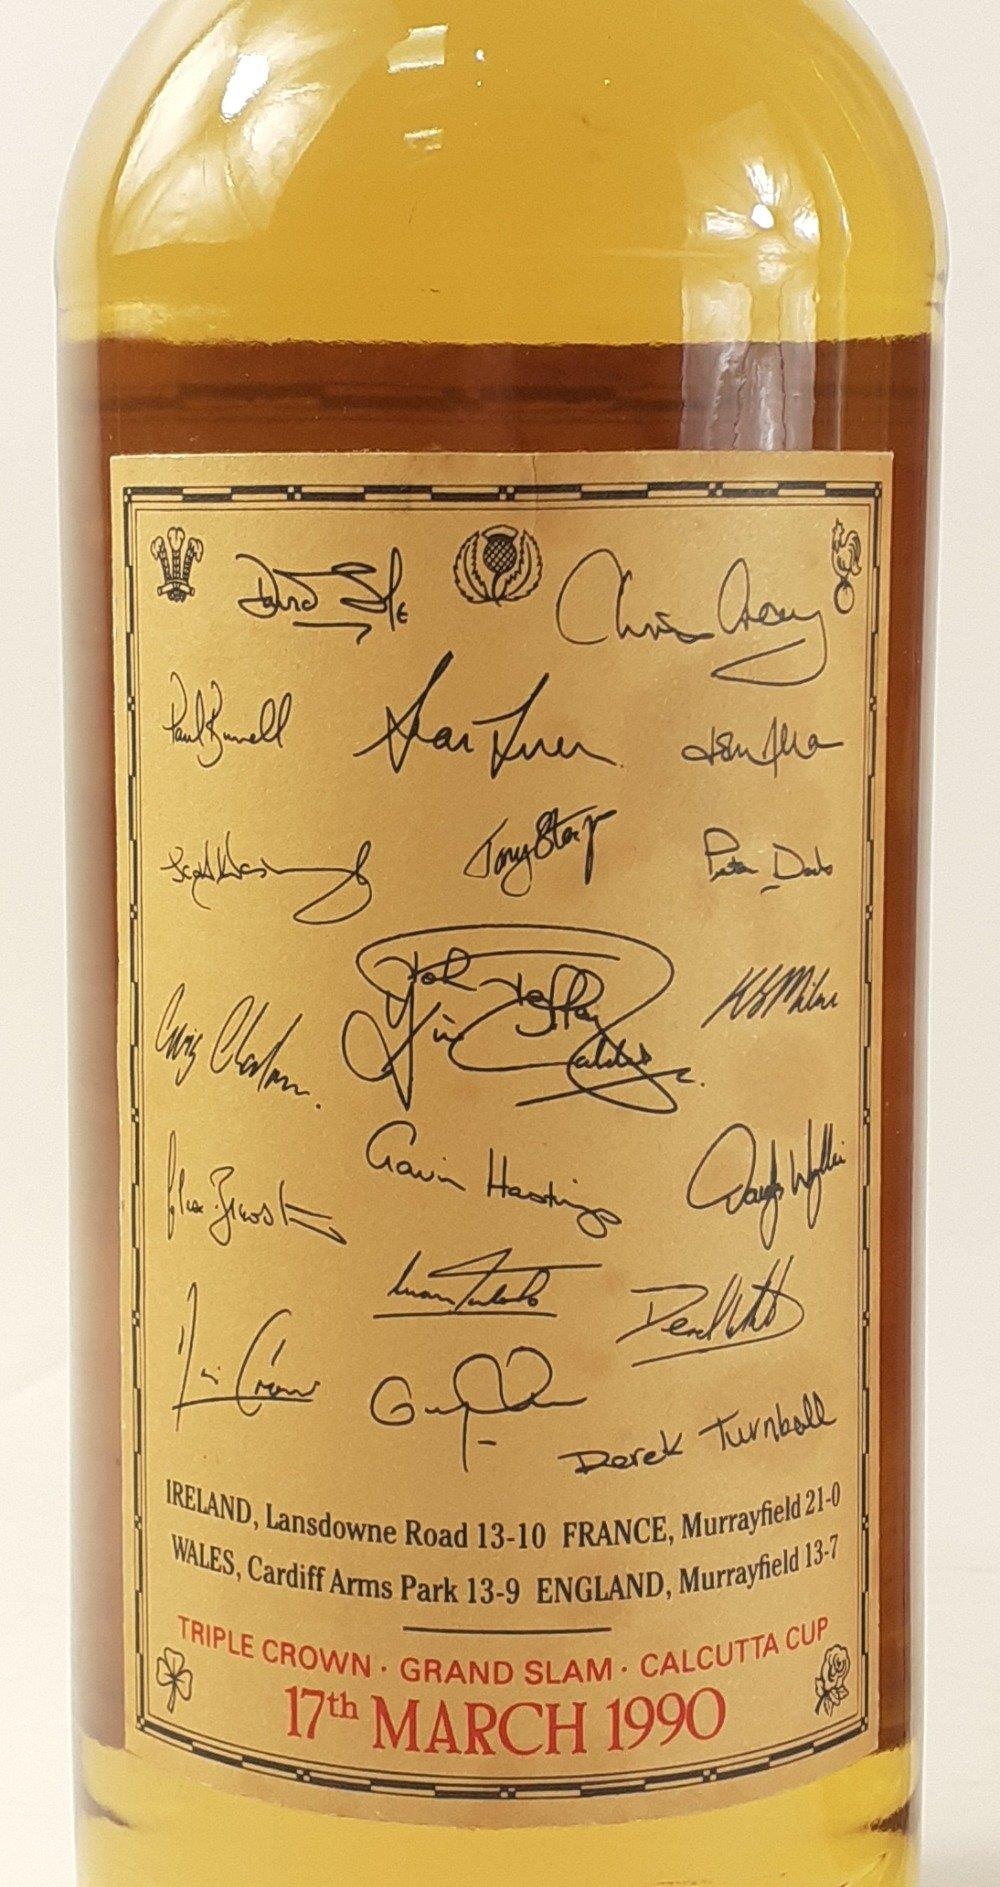 David Sole
Chris Gray
Paul Burnell
Sean Lineen
Scott Hastings
Tony Stanger
Peter Dods
John Jeffrey
Craig Chalmers.
Finlay Calder
Gavin Hastings
Douglas Wyllie
Iwan Tukalo
Derek White
Derek Turnbull
IRELAND, Lansdowne Road 13-10 FRANCE, Murrayfield 21-0
WALES, Cardiff Arms Park 13-9 ENGLAND, Murrayfield 13-7
TRIPLE CROWN · GRAND SLAM · CALCUTTA CUP
17th MARCH 1990